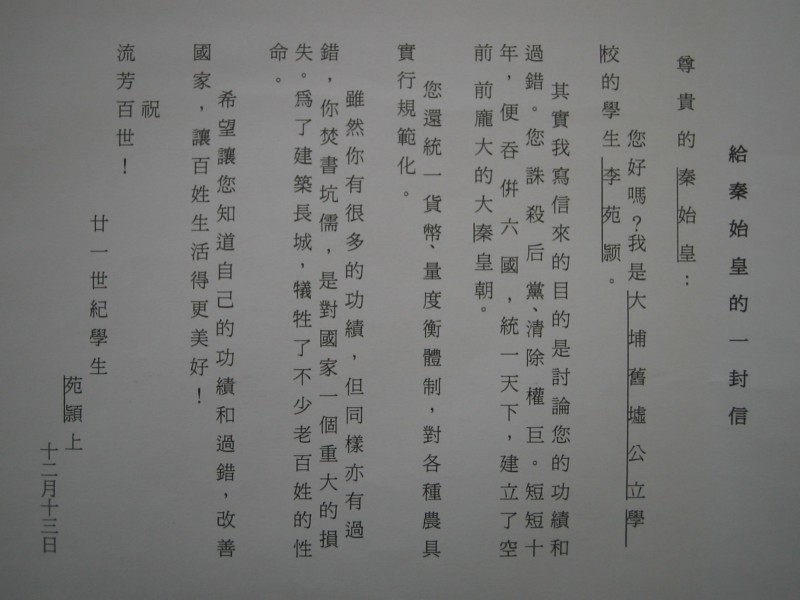 給秦始皇的一封信
尊貴的秦始皇：
您好嗎？我是大埔舊墟公立學
校的學生李苑頴。
其實我寫信來的目的是討論您的功績和
過錯。您誅殺后黨、清除權巨。短短十
年，便吞併六國，統一天下，建立了空
前前龐大的大秦皇朝。
您還統一貨幣、量度衡體制，對各種農具
實行規範化。
雖然你有很多的功績，但同樣亦有過
錯，你焚書坑儒，是對國家一個重大的損
失。爲了建築長城，犧牲了不少老百姓的性
命。
希望讓您知道自己的功績和過錯，改善
國家，讓百姓生活得更美好！
祝
流芳百世！
廿一世紀學生
苑頴上
十二月十三日